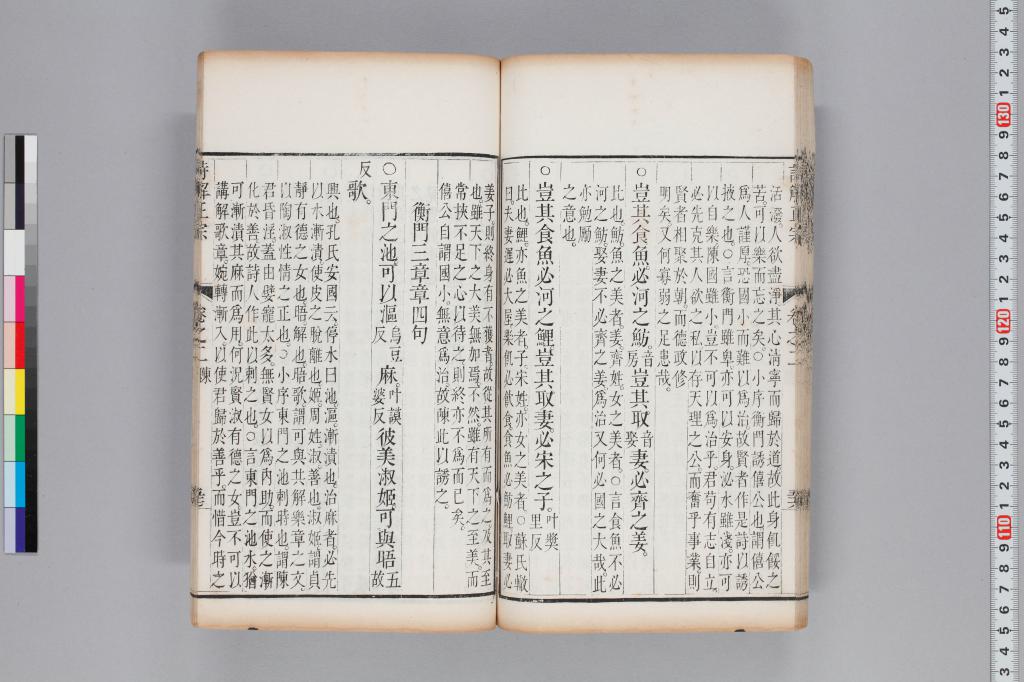 活潑人欲盡淨其心清寧而歸於道故此身飢餒之
苦可以樂而忘之矣○小序衡門誘僖公也謂僖公
爲人謹厚恐國小而難以爲治故賢者作是詩以誘
掖之也○言衡門雖卑亦可以安身泌水雖淺亦可
以自樂陳國雖小豈不可以爲治乎君苟有志自立
必先克其人欲之私以存天理之公而奮乎事業則
賢者相聚於朝而德政修
明矣又何寡弱之足患哉
○豈其食魚必河之魴音房豈其取音娶妻必齊之姜
比也魴魚之美者姜齊姓女之美者○言食魚不必
河之魴娶妻不必齊之姜爲治又何必國之大哉此
亦勉勵
之意也
○豈其食魚必河之鯉豈其取妻必宋之子叶獎里反
比也鯉亦魚之美者子宋姓亦女之美者○蘇氏轍
曰夫妻
姜子則終身有不獲者故從其所有而爲之及其至
也雖天下之大美無加焉不然雖有天下之至美而
常挾不足之心以待之則終亦不爲而已矣
僖公自謂國小無意爲治故陳此以誘之
衡門三章章四句
○東門之池可以漚烏豆反麻叶謨婆反彼美淑姬可與晤五故
反歌
興也孔氏安國云停水曰池漚漸漬也治麻者必先
以水漸漬使皮之脫離也姬周姓淑善也淑姬謂貞
靜有德之女也晤解也晤歌謂可與其解樂章之文
以陶淑性情之正也○小序東門之池刺時也謂陳
君昏淫蓋由嬖寵太多無賢女以爲內助而使之漸
化於善故詩人作此以刺之也○言東門之池水猶
可漸漬其麻而爲用何況賢淑有德之女豈不可以
講解歌章婉轉漸入以使君歸於善乎而惜今時之
詩解正宗
卷之二 陳